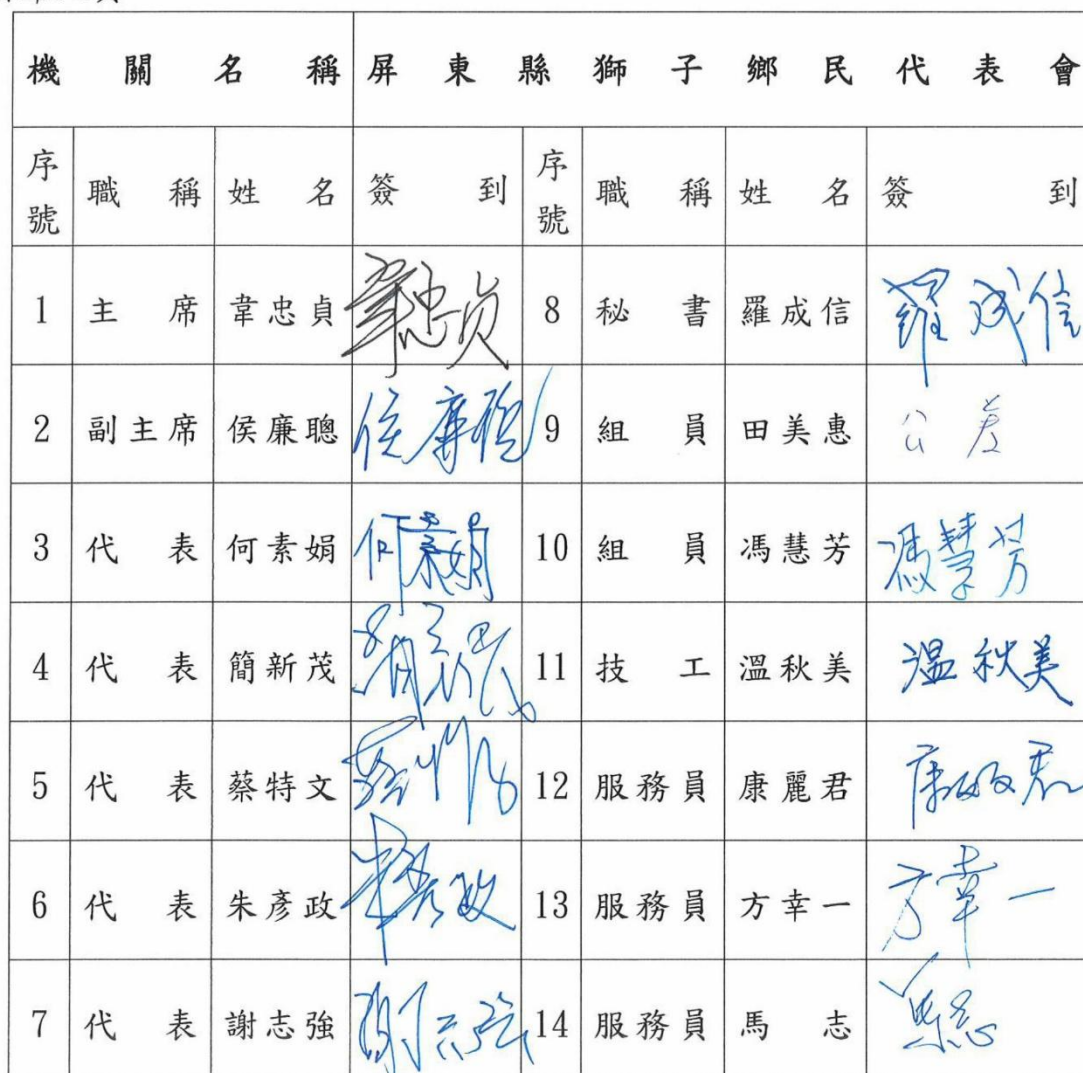 機關名稱 屏東縣獅子鄉民代表會
序號 職稱 姓名 簽到 序號 職稱 姓名 簽到
1 主席 韋忠貞 韋忠貞 8 秘書 羅成信 羅成信
2 副主席 侯廉聰 侯廉聰 9 組員 田美惠 公差
3 代表 何素娟 何素娟 10 組員 馮慧芳 馮慧芳
4 代表 簡新茂 簡新茂 11 技工 溫秋美 溫秋美
5 代表 蔡特文 12 服務員 康麗君 康麗君
6 代表 朱彥政 朱彥政 13 服務員 方幸一 方幸一
7 代表 謝志強 謝志強 14 服務員 馬志 馬志